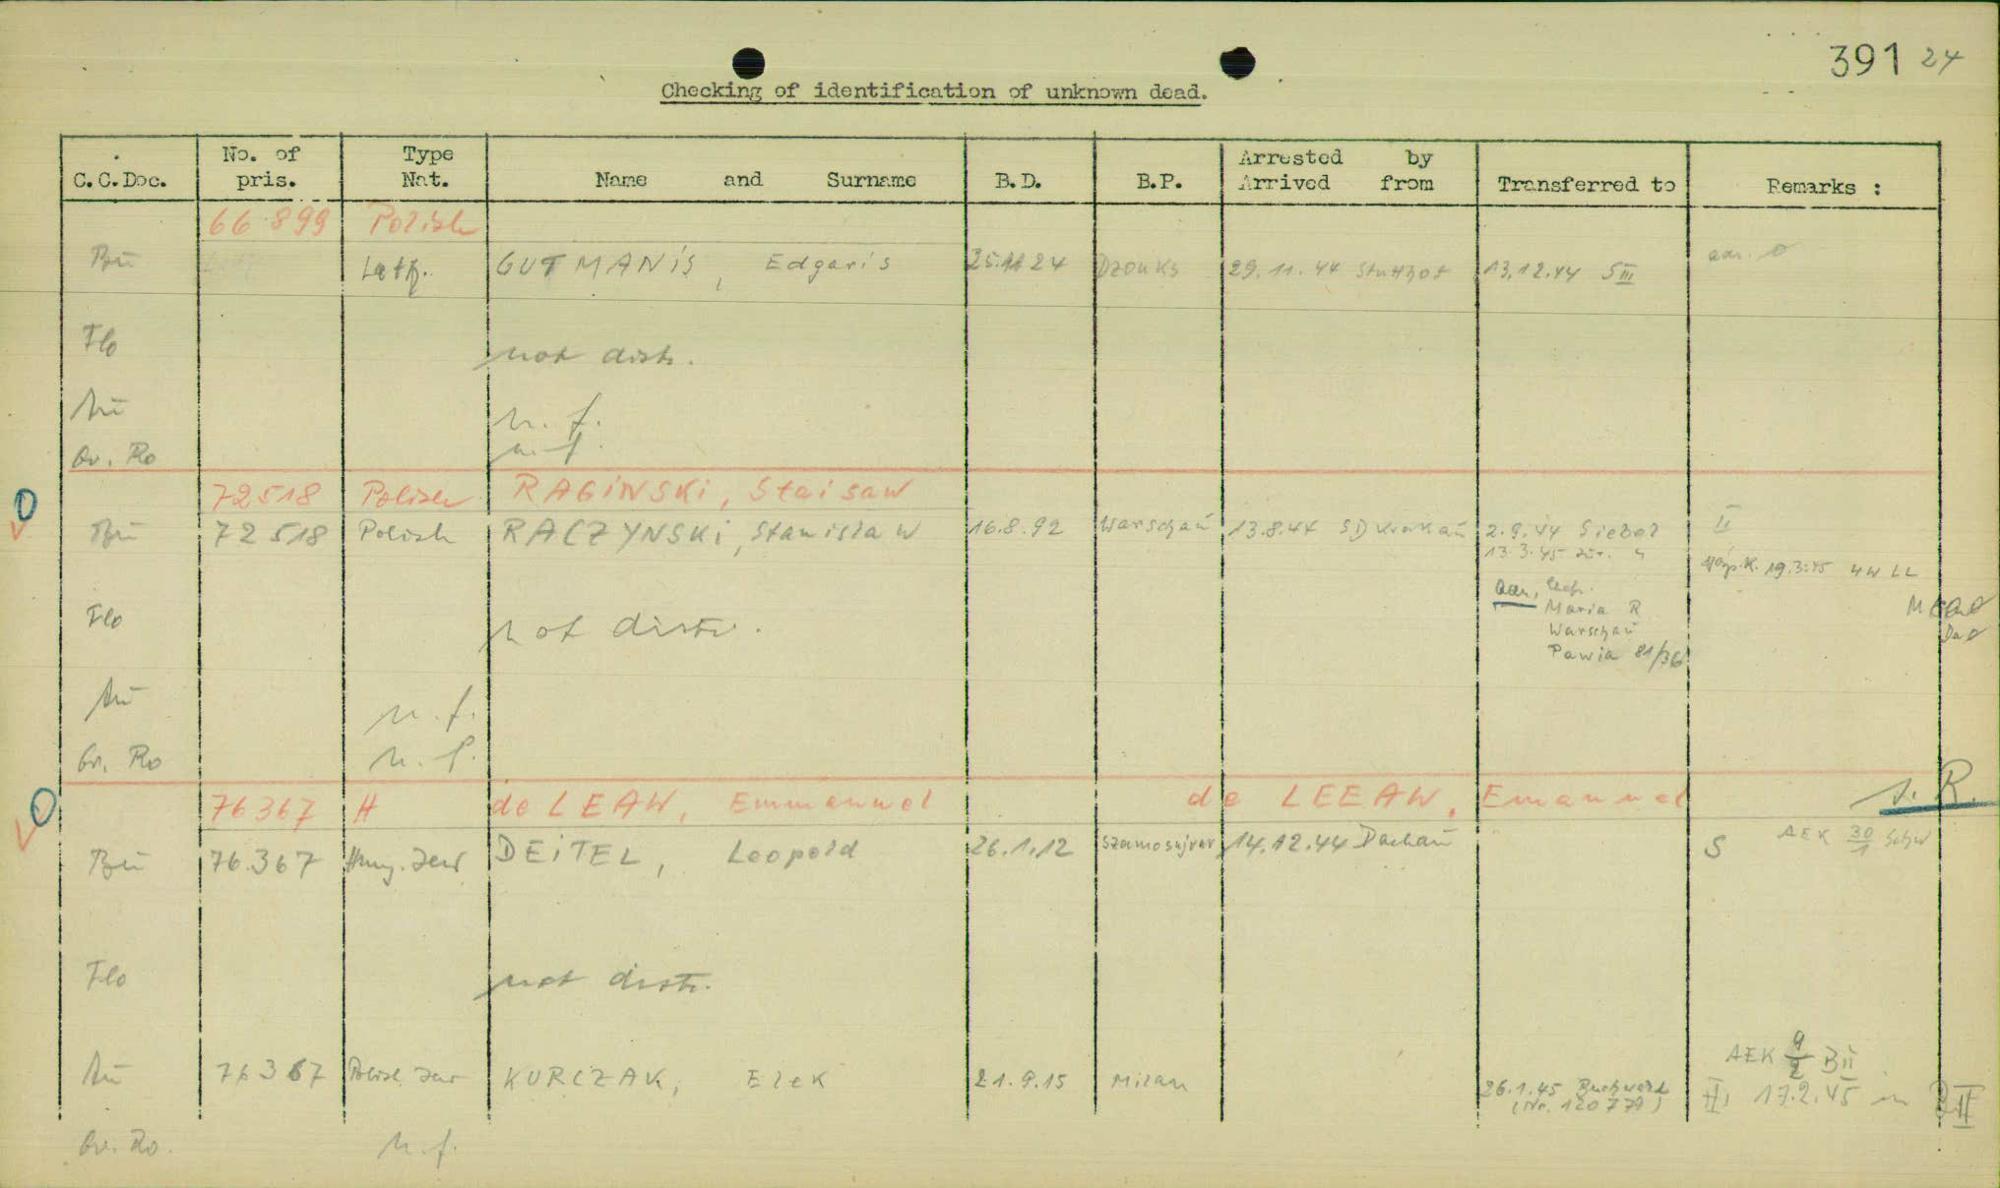 391 24
Checking of identification of unknown dead.
C.C.Doc. No. of pris. Type Nat. Name and Surname B.D. B.P. Arrested by Arrived from Transferred to Remarks :
66 899 Polish
Bū GUTMANIS, Edgaris 25.11.24 Dzouks 29.11.44 Stutthof 13.12.44 SIII
Flo not distr.
Aū n. f.
Gr. Ro n. f.
72518 Polish RAGINSKI, Staisaw
Bū 72518 Polish RACZYNSKI, Stanislaw 16.8.92 Warschaū 13.8.44 SD Krakaū 2.9.44 Siebel II
13.3.45
19.3.45
Maria R
Flo not distr. Warschaū
Pawia 81/36
Aū n. f.
Gr. Ro n. f.
s. R.
76367 H de LEAW, Emmanuel de LEEAW, Emanuel
Bū 76.367 Hung. Jew DEITEL, Leopold 26.1.12 Szamosujvar 14.12.44 Dachaū S AEK 30/1
Flo not distr.
AEK 9/2 Bū
Aū 76367 Polish Jew KURCZAK, Elek 21.9.15 Milan 26.1.45 Buchwald 17.2.45 in
(Nr. 120779)
Gr. Ro. n. f.